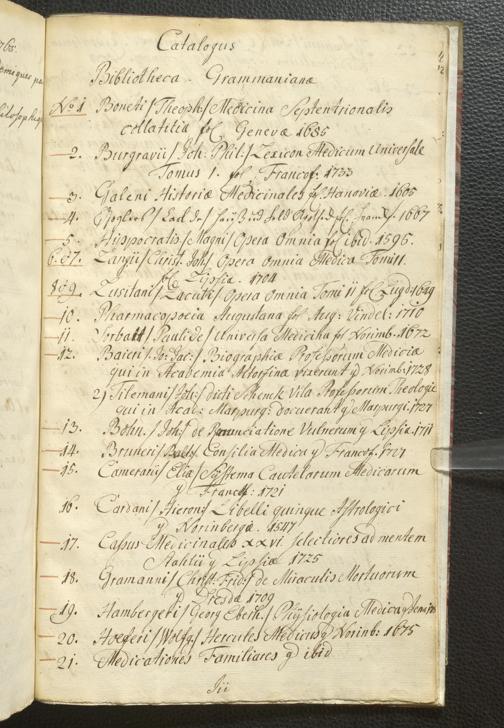 Catalogus
Bibliotheca Grammaniana
No 1 Boneti/Theoph:/Medicina Septentrionalis
collatitia fol Genevæ 1685
2. Burgravii/Joh: Phil:/Lexicon Medicum Universale
Tomus 1. fol Francof: 1733
3. Galeni Historiæ Medicinales fol Hanoviæ. 1605
4. 1667
5. Hippocratis/Magni/Opera Omnia fol ibid. 1596.
6.07. Langii/Christ. Joh/Opera omnia Medica Tomi II
fol Lipsiæ. 1704
8.09. Lusitani/Zacuti/Opera Omnia Tomi II fol Lugd 1649
10. Pharmacopoeia Augustana fol Aug: Vindel: 1710
11. Sorbait/Pauli de/Universa Medicina fol Norimb. 1672
12. Baieri/Jo: Jac:/Biographiæ Professorum Mediciæ
qui in Academia Altorfina vixerunt 4 Norimb: 1728
2) Tilemani/Joh:/dicti Schenck Vita Professorum Theologiæ
qui in Acad: Marpurg: docuerant 4 Marpurgi: 1727
13. Bohn./Joh/de Renunciatione Vulnerum 4 Lipsiæ 1711
14. Bruneri/Consilia Medica 4 Francof. 1727
15. Camerarii Eliæ/Systema Cautelarum Medicarum
4 Francf: 1721
16. Cardani/Hieron/Libelli quinque Astrologici
4 Norinbergæ. 1547
17. Casus Medicinales xxvi selectiores ad mentem
Stahlii 4 Lipsiæ 1725
18. Gramanni/Christ: Frid/de Miraculis Mortuorum
4 Dresdæ 1709
19. Hambergeri/Georg Eberh./Physiologia Medica 4 Jenæ
20. Hoeferi/Wolfg/Hercules Medicus 4 Norinb: 1675
21. Medicationes Familiares 4 ibid
Iii